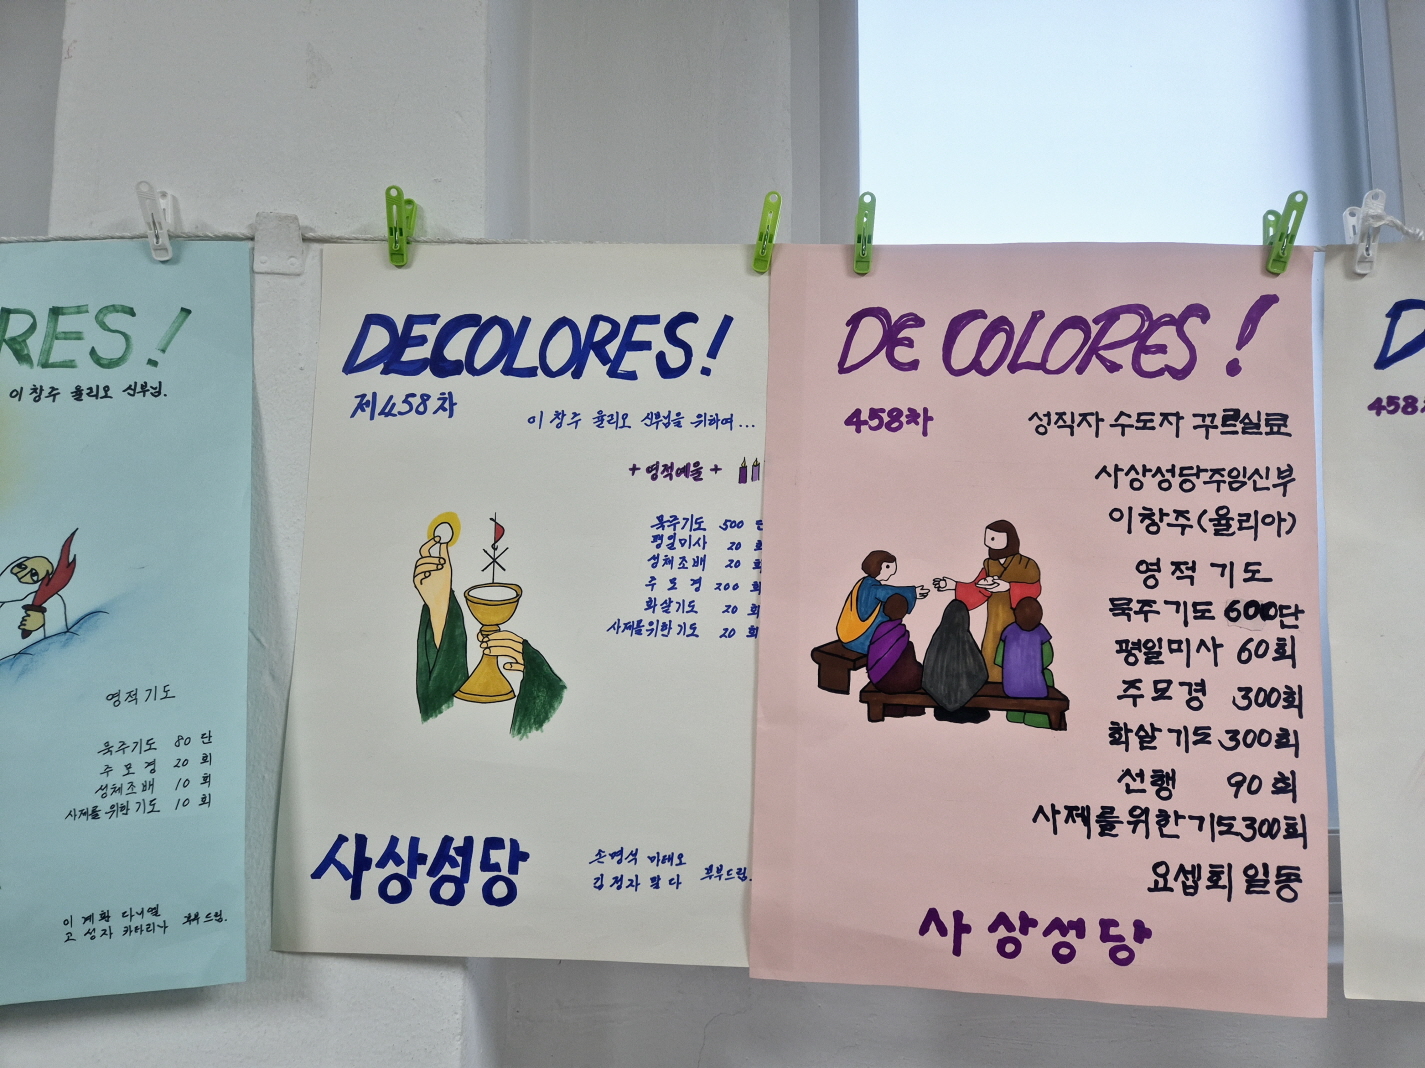 RES!
이창주 율리오 신부님.
영적기도
묵주기도 80 단
주모경 20 회
성체조배 10 회
사제를 위한 기도 10 회
이계환 다니엘
고성자 카타리나 부부드림.
DECOLORES!
제458차
이창주 율리오 신부님을 위하여...
+ 영적예물 +
묵주기도 500 단
평일미사 20 회
성체조배 20 회
주모경 200 회
화살기도 20 회
사제를위한기도 20 회
사상성당
손명석 마태오
김정자 말다 부부드림.
DE COLORES!
458차
성직자 수도자 꾸르실료
사상성당주임신부
이창주(율리아)
영적 기도
묵주기도 600단
평일미사 60회
주모경 300회
화살기도 300회
선행 90회
사제를위한기도300회
요셉회 일동
사상성당
D
458차